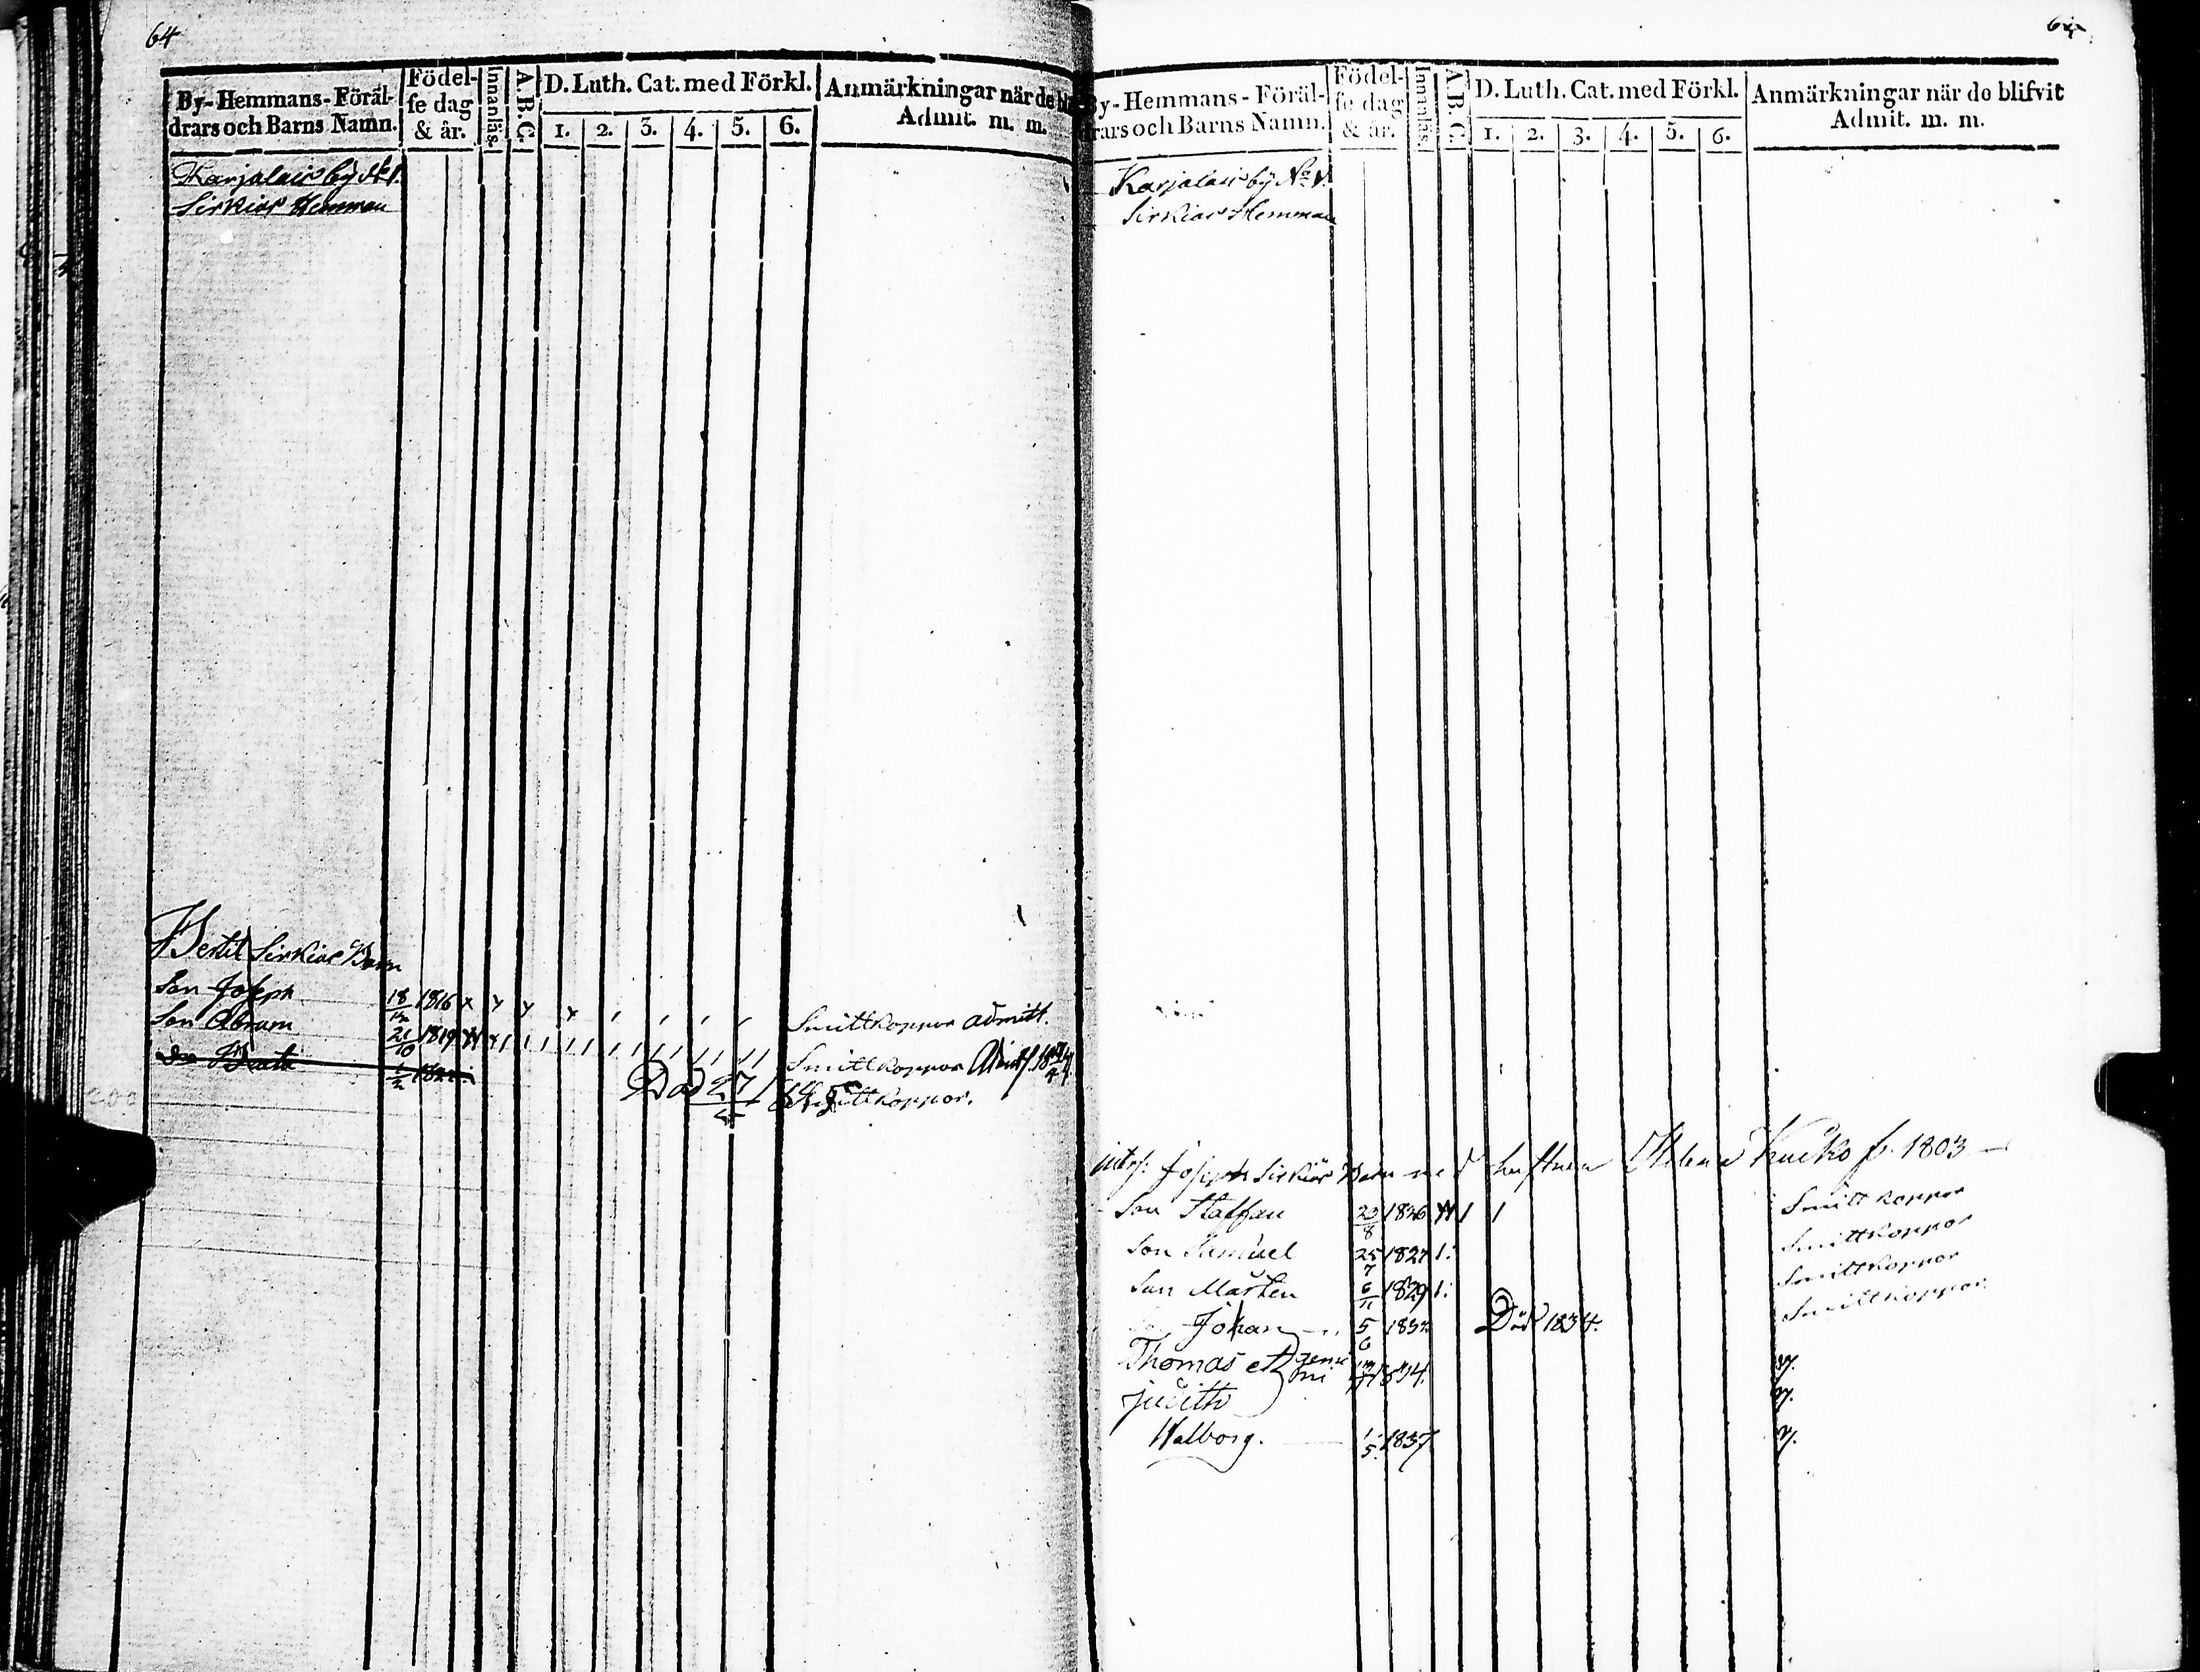 64
By-Hemmans-Föräl-
drars och Barns Namn.
Födel-
se dag
& år.
Innanläs.
A.B.C.
D. Luth. Cat. med Förkl.
1. 2. 3. 4. 5. 6.
Anmärkningar när de
Admit. m. m.
Karjalais by No 1.
Sirkiar Hemman
Bertil Sirkiar Barn
Son Joseph 18 1816 Smittkoppor admitt.
Son Abram 26/10 1819 Smittkoppor
Beata Död 27 Smittkoppor.
64
By-Hemmans-Föräl-
drars och Barns Namn.
Födel-
se dag
& år.
Innanläs.
A.B.C.
D. Luth. Cat. med Förkl.
1. 2. 3. 4. 5. 6.
Anmärkningar när de blifvit
Admit. m. m.
Karjalais by No 1.
Sirkiar Hemman
Joseph Sirkiär Barn med hustrun Helena Kucko f. 1803
Son Staffan 23/8 1826 Smittkoppor
Son Samuel 25/7 1827 Smittkoppor
Son Mårten 6/11 1829 Smittkoppor
Johan 5/6 1832 Död 1834. Smittkoppor
Thomas et gemi
ni 1834.
Judith
Walborg. 1/5 1837